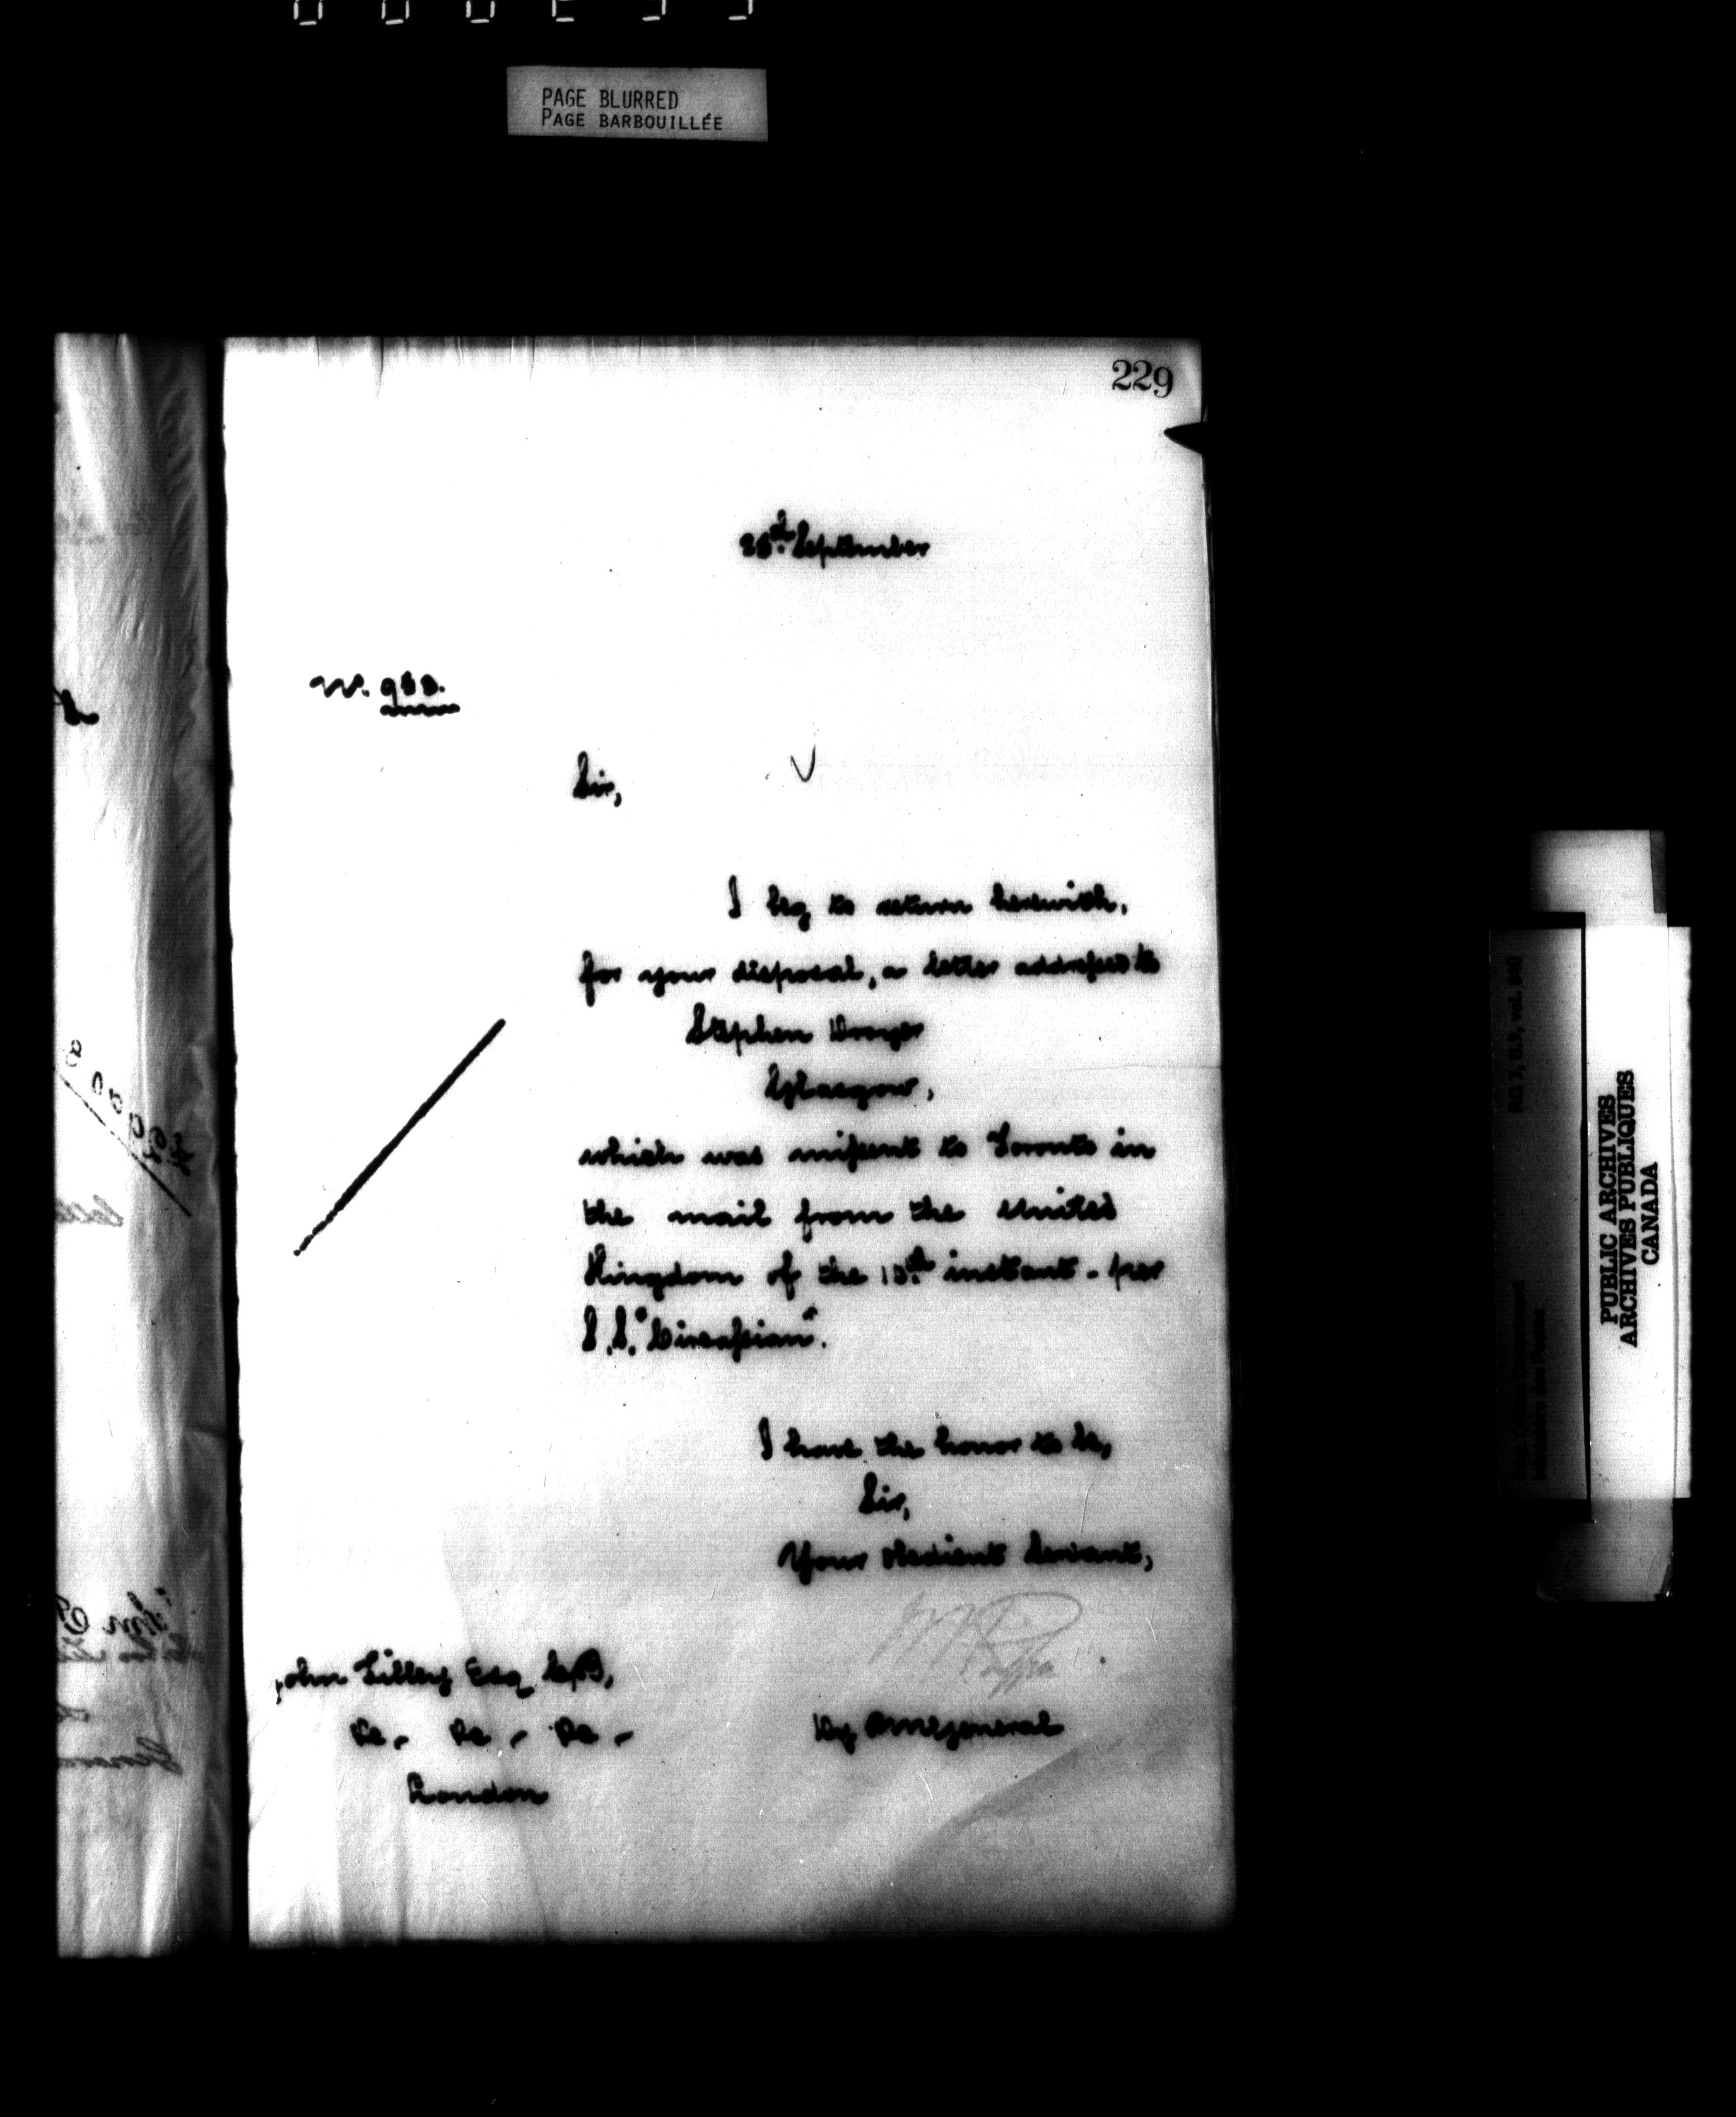 PAGE BLURRED
PAGE BARBOUILLÉE
229
September
Sir,
I beg to return herewith,
for your disposal, a letter addressed to
Stephen
Glasgow,
which was missent to Toronto in
the mail from the United
Kingdom of the instant - per
S.S. "Circassian".
I have the honor to be,
Sir,
Your obedient Servant,
John Tilley Esq C.B,
&c. &c. &c.
London
Dy P M General
RG 3, B.9, vol.
PUBLIC ARCHIVES
ARCHIVES PUBLIQUES
CANADA